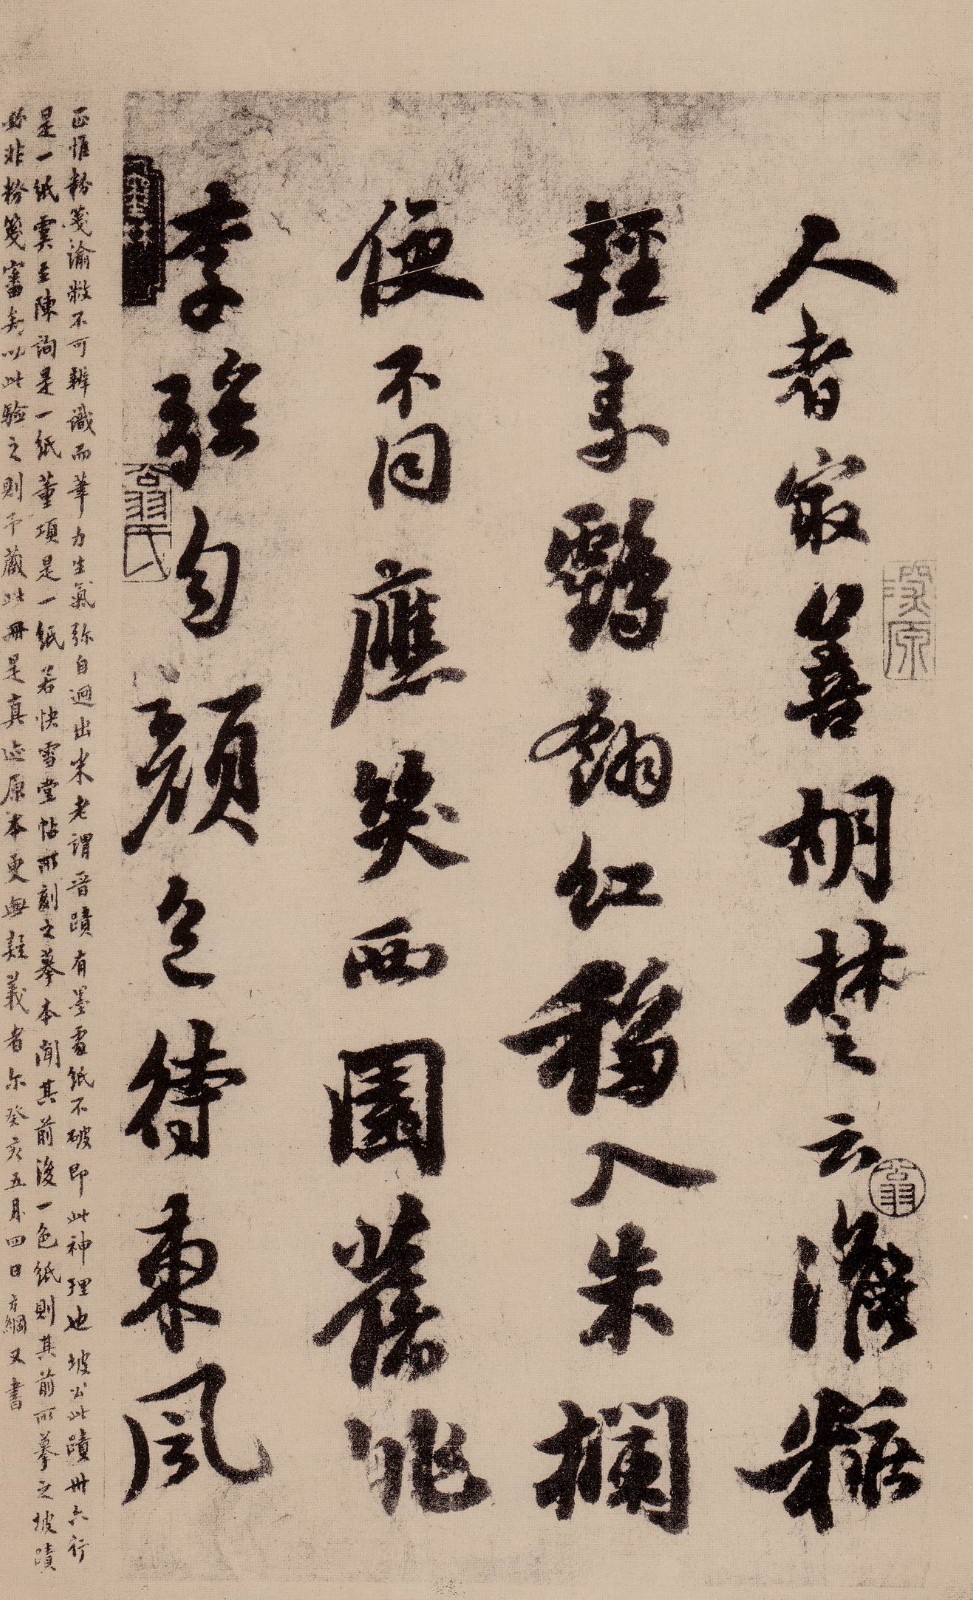 人者㝡善胡楚云澹粧
輕素鶴翎紅移入朱欄
便不同應笑西園舊桃
李強勻顏色待東風
正惟粉箋渝敝不可辨識而筆力生氣弥自迥出米老謂晉蹟有墨處紙不破即此神理也坡公此蹟卅六行
是一紙虞至陳詢是一紙董項是一紙若快雪堂帖所刻之摹本聞其前後一色紙則其前所摹之坡蹟
必非粉箋審矣以此驗之則予藏此冊是真迹原本更無疑義者尓癸亥五月四日方綱又書
翁
翁氏